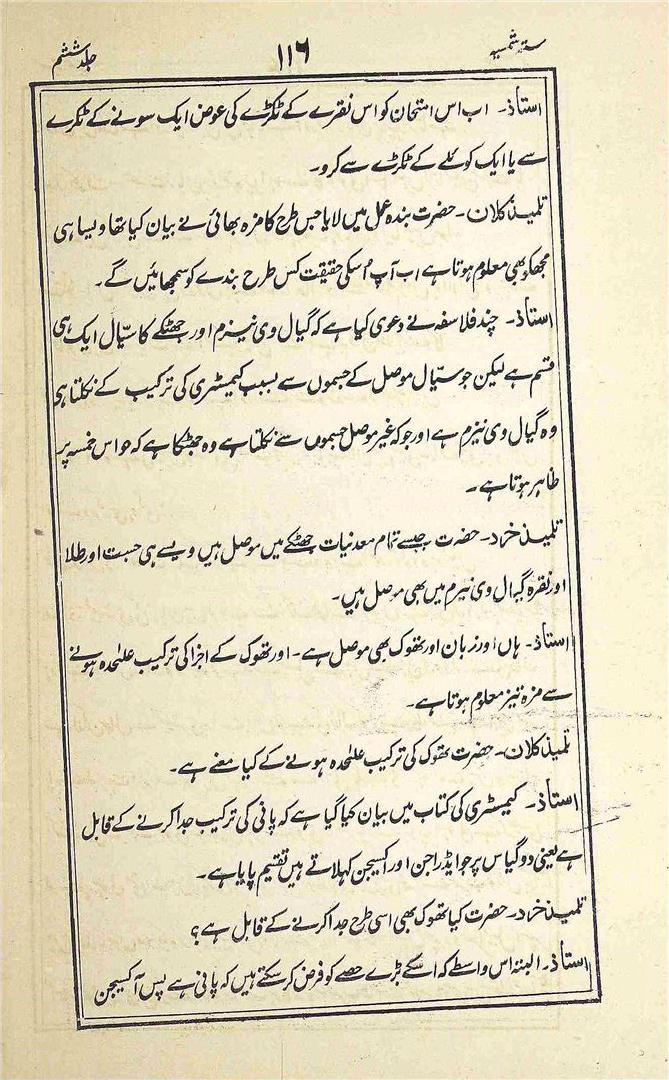 ستہ شمسیہ ۱۱۶ جلد ششم
استاذ۔ اب اس امتحان کو اس نقرے کے ٹکڑے کی عوض ایک سونے کے ٹکڑے
سے یا ایک کوئلے کے ٹکڑے سے کرو۔
تلمیذ کلان۔ حضرت بندہ عمل میں لایا جس طرح کا مزہ بھائی نے بیان کیا تھا ویسا ہی
مجھکو بھی معلوم ہوتا ہے اب آپ اُسکی حقیقت کس طرح بندے کو سمجھائیں گے۔
استاذ۔ چند فلاسفہ نے دعوی کیا ہے کہ گیال وی نیزم اور جھٹکے کا سیّال ایک ہی
قسم ہے لیکن جو سیّال موصل کے جسموں سے بسبب کیمسٹری کی ترکیب کے نکلتا ہی
وہ گیال وی نیزم ہے اور جو کہ غیر موصل جسموں سے نکلتا ہے وہ جھٹکا ہے کہ حواس خمسہ پر
ظاہر ہوتا ہے۔
تلمیذ خرد۔ حضرت جیسے تمام معدنیات جھٹکے میں موصل ہیں ویسے ہی جست اور طلا
اور نقرہ گیال وی نیزم میں بھی موصل ہیں۔
استاذ۔ ہاں اور زبان اور تھوک بھی موصل ہے۔ اور تھوک کے اجزا کی ترکیب علٰحدہ ہونے
سے مزہ تیز معلوم ہوتا ہے۔
تلمیذ کلان۔ حضرت تھوک کی ترکیب علٰحدہ ہونے کے کیا معنے ہے۔
استاذ۔ کیمسٹری کی کتاب میں بیان کیا گیا ہے کہ پانی کی ترکیب جدا کرنے کے قابل
ہے یعنی دو گیاس پر جو ایڈراجن اور اکسیجن کہلاتے ہیں تقسیم پایا ہے۔
تلمیذ خرد۔ حضرت کیا تھوک بھی اسی طرح جدا کرنے کے قابل ہے؟
استاذ۔ البتہ اس واسطے کہ اسکے بڑے حصے کو فرض کر سکتے ہیں کہ پانی ہے پس آکسیجن